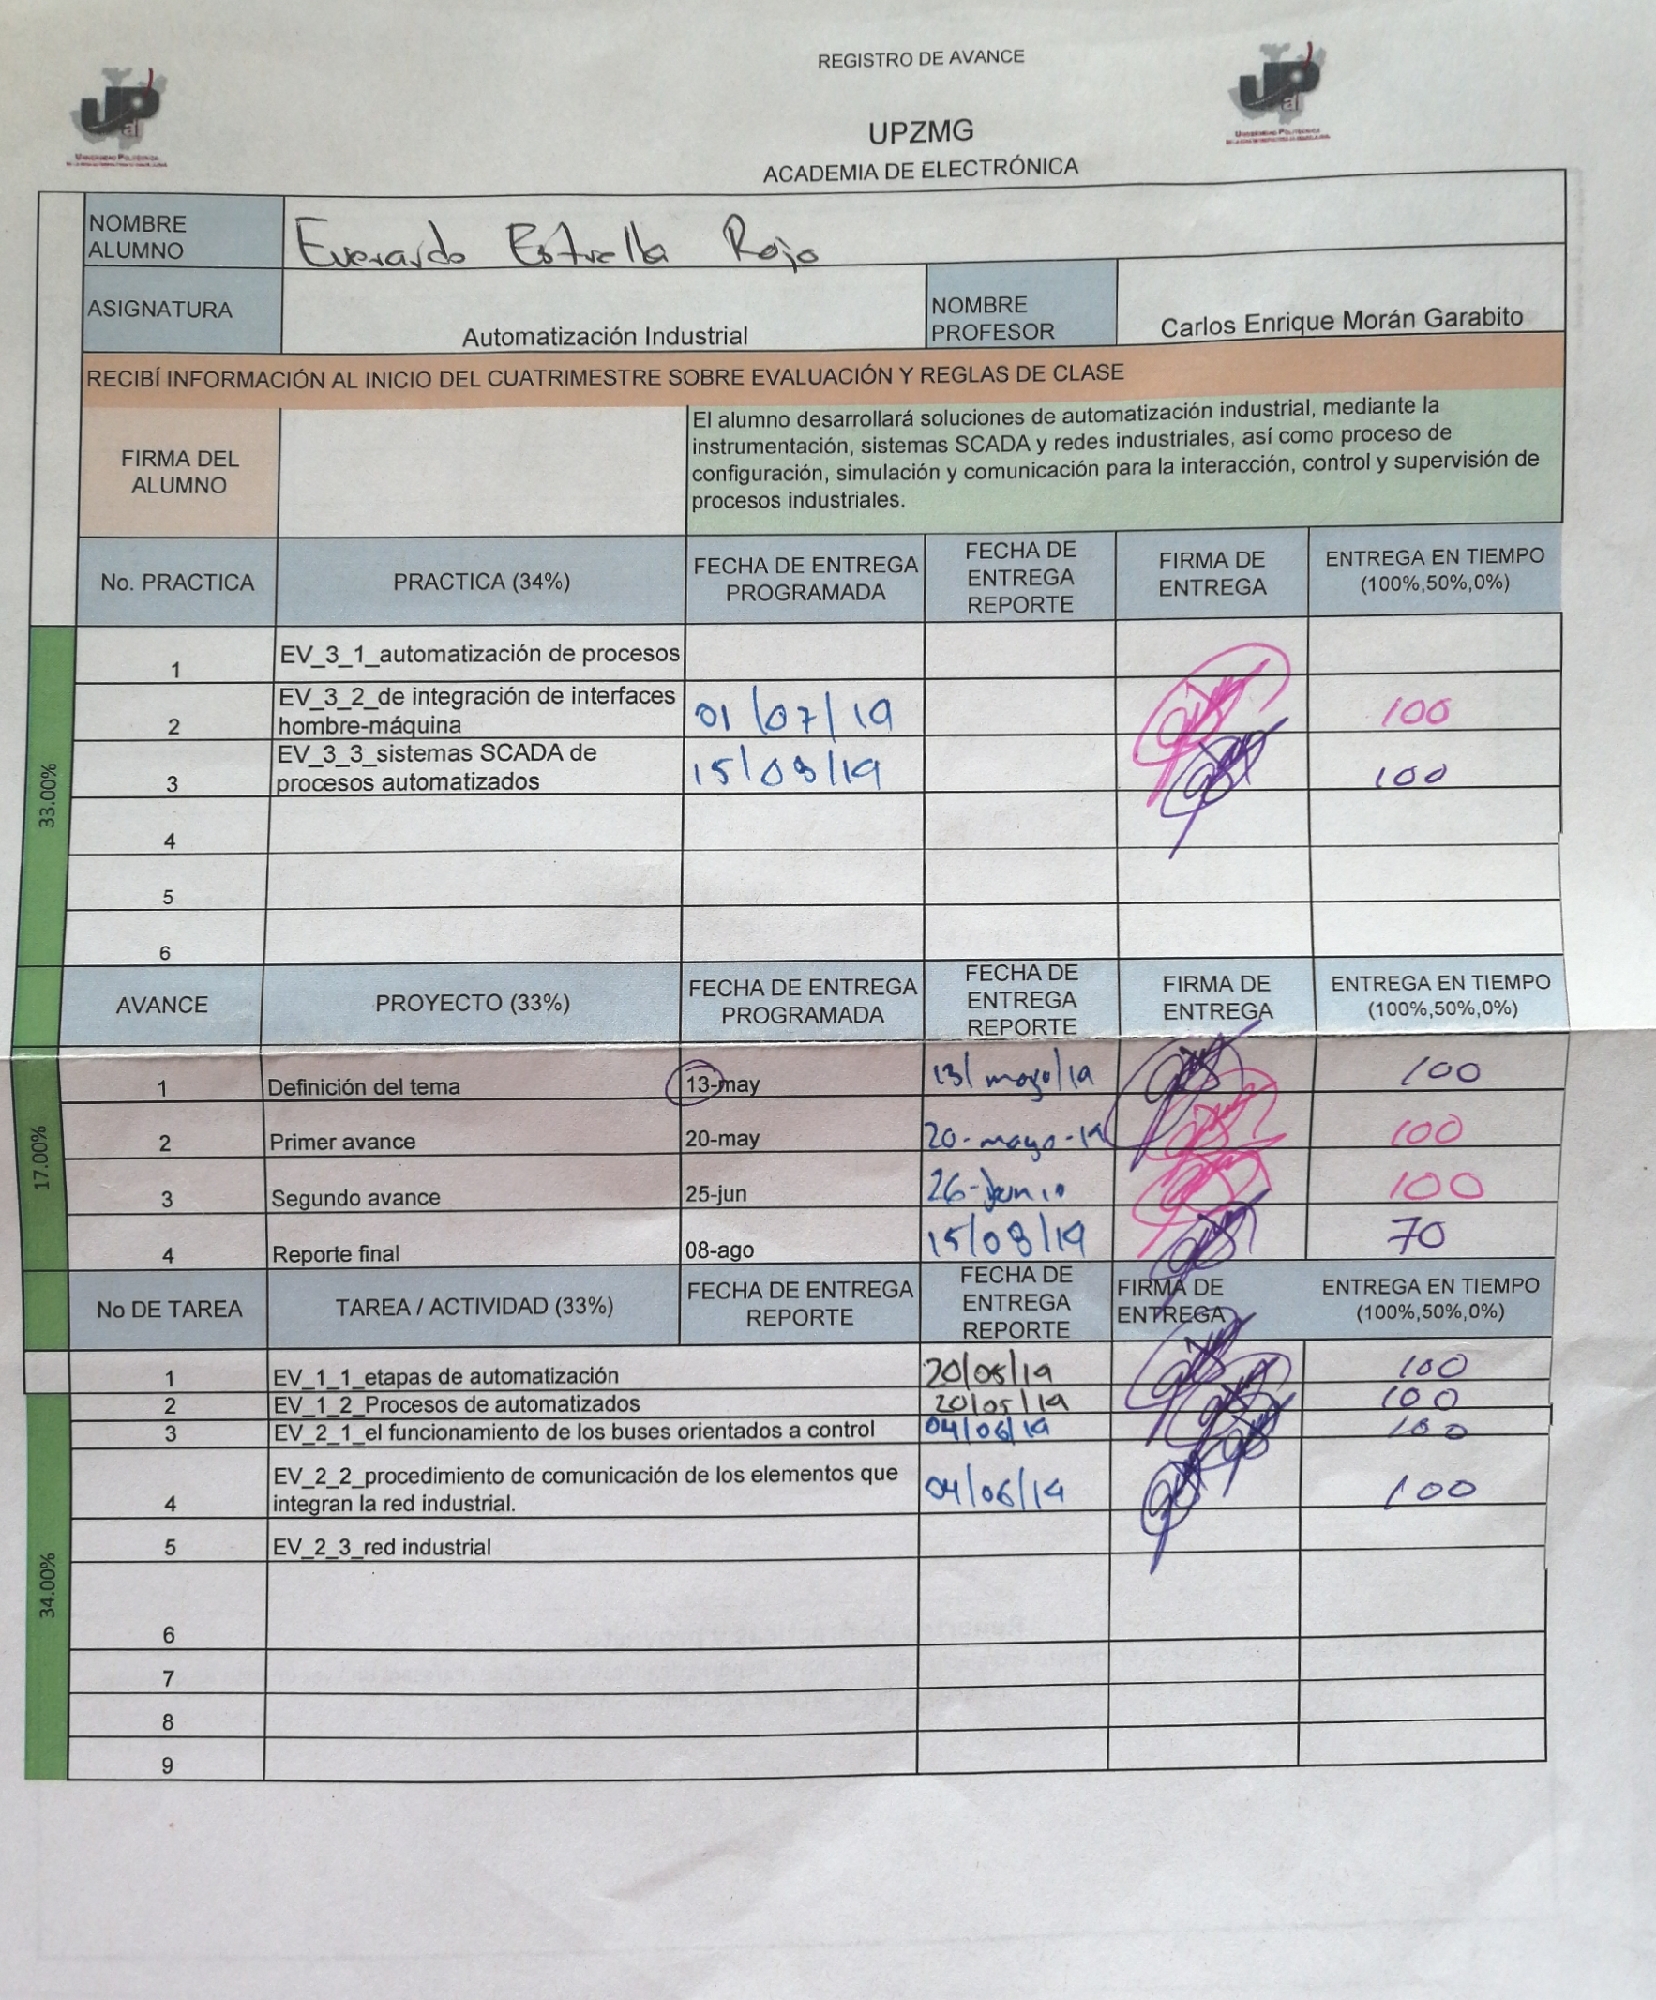 REGISTRO DE AVANCE
UPZMG
ACADEMIA DE ELECTRÓNICA
UPal
UNIVERSIDAD POLITÉCNICA
UPal
UNIVERSIDAD POLITÉCNICA
NOMBRE ALUMNO Everardo Estrella Rojo
ASIGNATURA Automatización Industrial NOMBRE PROFESOR Carlos Enrique Morán Garabito
RECIBÍ INFORMACIÓN AL INICIO DEL CUATRIMESTRE SOBRE EVALUACIÓN Y REGLAS DE CLASE
FIRMA DEL ALUMNO
El alumno desarrollará soluciones de automatización industrial, mediante la
instrumentación, sistemas SCADA y redes industriales, así como proceso de
configuración, simulación y comunicación para la interacción, control y supervisión de
procesos industriales.
No. PRACTICA PRACTICA (34%) FECHA DE ENTREGA PROGRAMADA FECHA DE ENTREGA REPORTE FIRMA DE ENTREGA ENTREGA EN TIEMPO (100%,50%,0%)
33.00%
1 EV_3_1_automatización de procesos
2 EV_3_2_de integración de interfaces hombre-máquina 01/07/19 100
3 EV_3_3_sistemas SCADA de procesos automatizados 15/08/19 100
4
5
6
AVANCE PROYECTO (33%) FECHA DE ENTREGA PROGRAMADA FECHA DE ENTREGA REPORTE FIRMA DE ENTREGA ENTREGA EN TIEMPO (100%,50%,0%)
17.00%
1 Definición del tema 13-may 13/mayo/19 100
2 Primer avance 20-may 20-mayo-19 100
3 Segundo avance 25-jun 26-Junio 100
4 Reporte final 08-ago 15/08/19 70
No DE TAREA TAREA / ACTIVIDAD (33%) FECHA DE ENTREGA REPORTE FECHA DE ENTREGA REPORTE FIRMA DE ENTREGA ENTREGA EN TIEMPO (100%,50%,0%)
34.00%
1 EV_1_1_etapas de automatización 20/05/19 100
2 EV_1_2_Procesos de automatizados 20/05/19 100
3 EV_2_1_el funcionamiento de los buses orientados a control 04/06/19 100
4 EV_2_2_procedimiento de comunicación de los elementos que integran la red industrial. 04/06/19 100
5 EV_2_3_red industrial
6
7
8
9